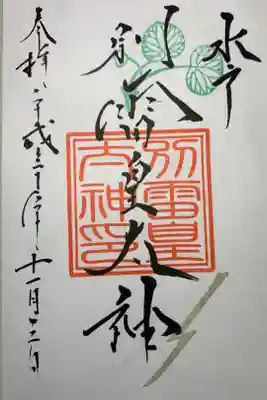 水戸
別雷皇太神
別雷皇
太神印
奉拝 平成 年 十一月 日